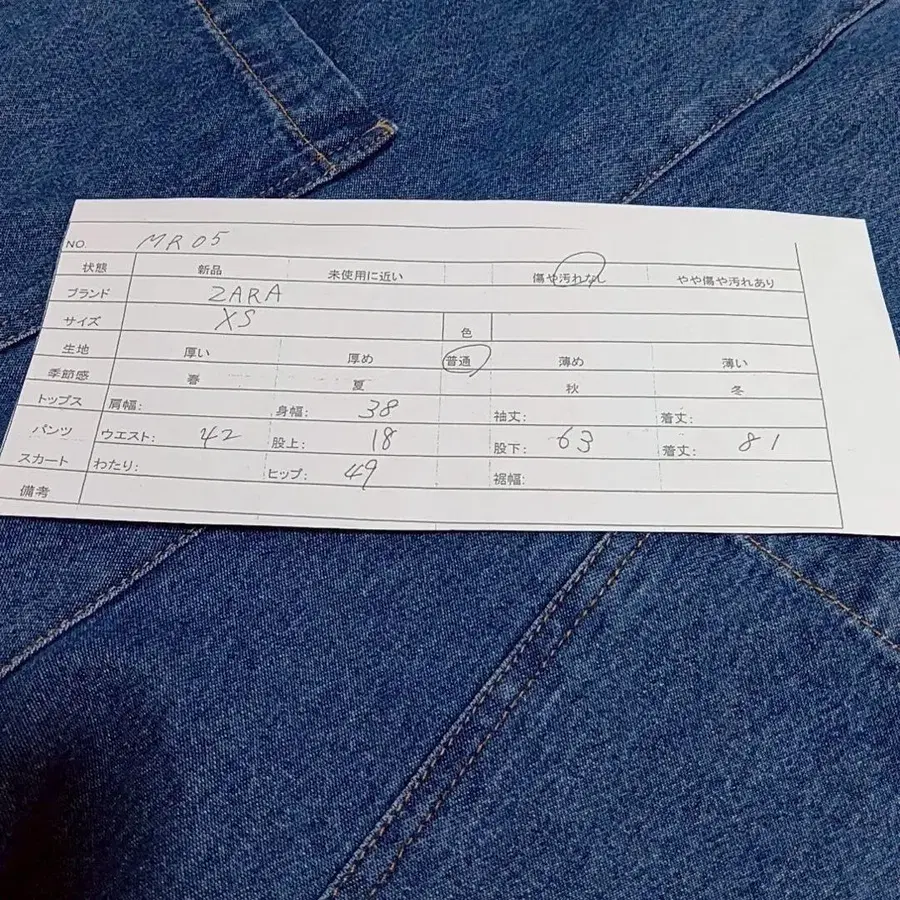 NO. MR05
状態 新品 未使用に近い 傷や汚れなし やや傷や汚れあり
ブランド ZARA
サイズ XS 色
生地 厚い 厚め 普通 薄め 薄い
季節感 春 夏 秋 冬
トップス 肩幅: 身幅: 38 袖丈: 着丈:
パンツ ウエスト: 42 股上: 18 股下: 63 着丈: 81
スカート わたり: ヒップ: 49 裾幅:
備考